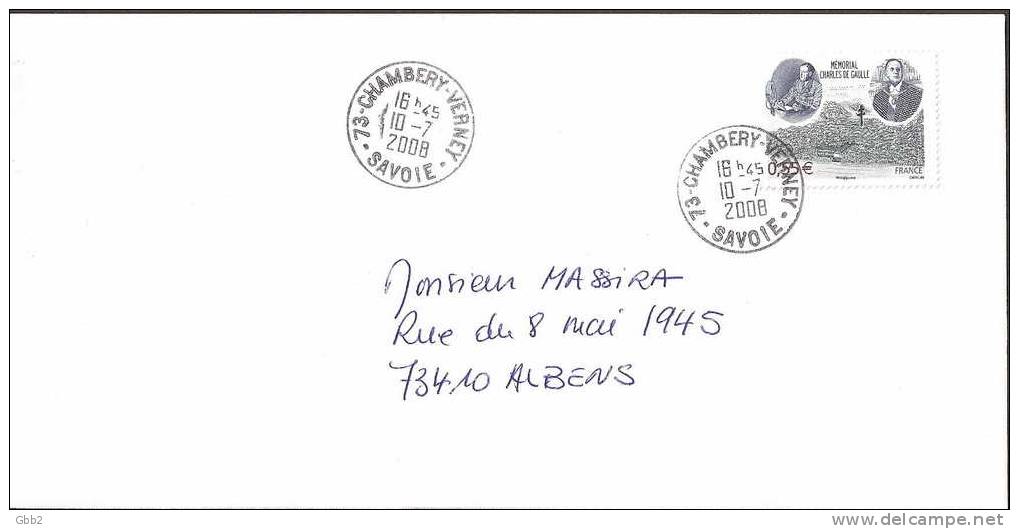 73-CHAMBERY-VERNEY
16 h 45
10-7
2008
SAVOIE
MÉMORIAL
CHARLES DE GAULLE
0,55€
FRANCE
73-CHAMBERY-VERNEY
16 h 45
10-7
2008
SAVOIE
Monsieur MASSIRA
Rue du 8 mai 1945
73410 ALBENS
Gbb2
www.delcampe.net